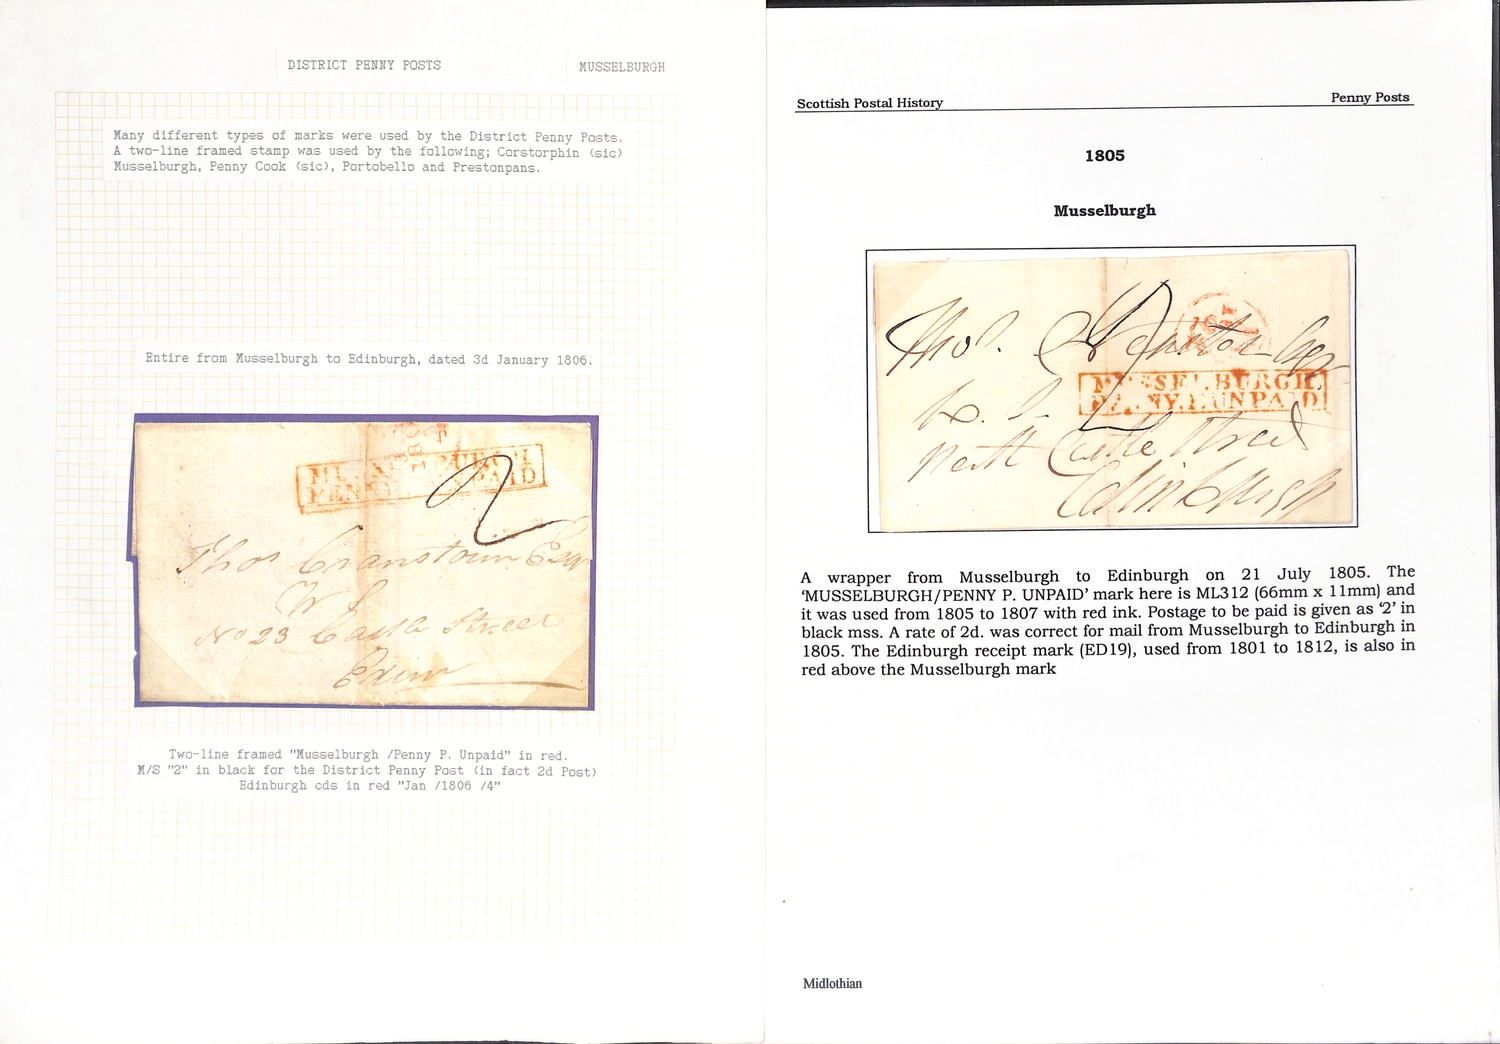 DISTRICT PENNY POSTS
MUSSELBURGH
Many different types of marks were used by the District Penny Posts.
A two-line framed stamp was used by the following; Corstorphin (sic)
Musselburgh, Penny Cook (sic), Portobello and Prestonpans.
Entire from Musselburgh to Edinburgh, dated 3d January 1806.
2
Thos Cranstoun Esqr
W S
No 23 Castle Street
Edinr
Two-line framed "Musselburgh /Penny P. Unpaid" in red.
M/S "2" in black for the District Penny Post (in fact 2d Post)
Edinburgh cds in red "Jan /1806 /4"
Scottish Postal History
Penny Posts
1805
Musselburgh
Thos.
2
MUSSELBURGH
PENNY.P.UNPAID
North Castle Street
Edinburgh
A wrapper from Musselburgh to Edinburgh on 21 July 1805. The
‘MUSSELBURGH/PENNY P. UNPAID’ mark here is ML312 (66mm x 11mm) and
it was used from 1805 to 1807 with red ink. Postage to be paid is given as ‘2’ in
black mss. A rate of 2d. was correct for mail from Musselburgh to Edinburgh in
1805. The Edinburgh receipt mark (ED19), used from 1801 to 1812, is also in
red above the Musselburgh mark
Midlothian